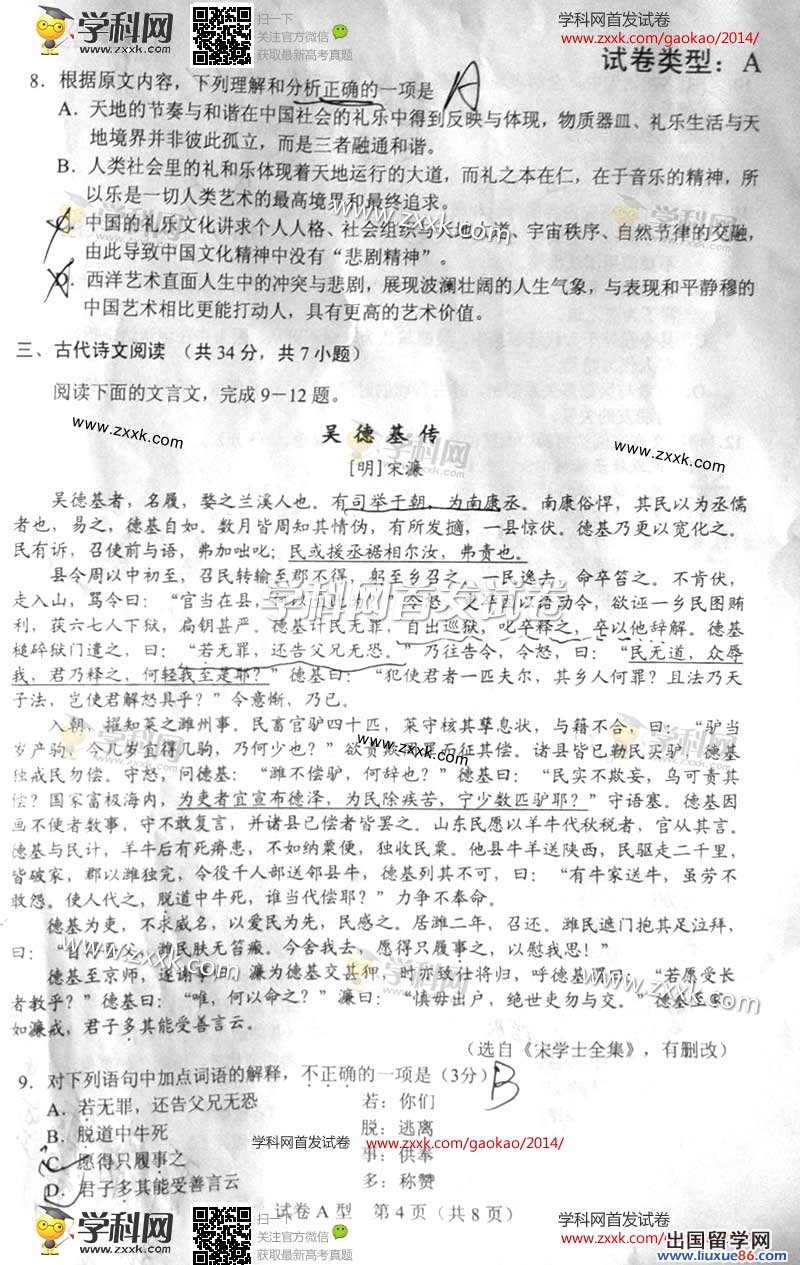 学科网 www.zxxk.com 扫一扫 关注官方微信 获取最新高考真题 学科网首发试卷 www.zxxk.com/gaokao/2014/
试卷类型：A
8．根据原文内容，下列理解和分析正确的一项是 A
A．天地的节奏与和谐在中国社会的礼乐中得到反映与体现，物质器皿、礼乐生活与天
地境界并非彼此孤立，而是三者融通和谐。
B．人类社会里的礼和乐体现着天地运行的大道，而礼之本在仁，在于音乐的精神，所
以乐是一切人类艺术的最高境界和最终追求。
C．中国的礼乐文化讲求个人人格、社会组织与天地之道、宇宙秩序、自然节律的交融，
由此导致中国文化精神中没有“悲剧精神”。
D．西洋艺术直面人生中的冲突与悲剧，展现波澜壮阔的人生气象，与表现和平静穆的
中国艺术相比更能打动人，具有更高的艺术价值。
三、古代诗文阅读 （共 34 分，共 7 小题）
阅读下面的文言文，完成 9－12 题。
www.zxxk.com
吴 德 基 传
www.zxxk.com
[明]宋濂
吴德基者，名履，婺之兰溪人也。有司举于朝，为南康丞。南康俗悍，其民以为丞儒
者也，易之，德基自如。数月皆周知其情伪，有所发擿，一县惊伏。德基乃更以宽化之。
民有诉，召使前与语，弗加咄叱；民或援丞裾相尔汝，弗责也。
县令周以中初至，召民转输至郡不得，躬至乡召之，一民逸去，命卒笞之。不肯伏，
走入山，骂令曰：“官当在县，
利，获六七人下狱，扃钥甚严。德基计民无罪，自出巡狱，叱卒释之，卒以他辞解。德基
槌碎狱门遣之，曰：“若无罪，还告父兄无恐。”乃往告令，令怒，曰：“民无道，众辱
我，君乃释之，何轻我至是耶？”德基曰：“犯使君者一匹夫尔，其乡人何罪？且法乃天
子法，岂使君解怒具乎？”令意惭，乃已。
入朝，擢知莱之潍州事。民畜官驴四十匹，莱守核其孳息状，与籍不合，曰：“驴当
岁产驹，今几岁宜得几驹，乃何少也？”欲责欺罔罪而征其偿。诸县皆已勒民买驴，德基
独戒民勿偿。守怒，问德基：“潍不偿驴，何辞也？”德基曰：“民实不欺妄，乌可责其
偿？国家富极海内，为吏者宜宣布德泽，为民除疾苦，宁少数匹驴耶？”守语塞。德基因
画不便者数事，守不敢复言，并诸县已偿者皆罢之。山东民愿以羊牛代秋税者，官从其言。
德基与民计，羊牛后有死瘠患，不如纳粟便，独收民粟。他县牛羊送陕西，民驱走二千里，
皆破家，郡以潍独完，令役千人部送邻县牛，德基列其不可，曰：“有牛家送牛，虽劳不
敢怨。使人代之，脱道中牛死，谁当代偿耶？”力争不奉命。
德基为吏，不求威名，以爱民为先，民感之。居潍二年，召还。潍民遮门抱其足泣拜，
曰：“自 父 ，潍民肤无笞瘢。今舍我去，愿得只履事之，以慰我思！”
德基至京师， 谢事， 濂为德基交甚狎，时亦致仕将归，呼德基谓曰：“若愿受长
者教乎？”德基曰：“唯，何以命之？”濂曰：“慎毋出户，绝世吏勿与交。”德基至家
如濂戒，君子多其能受善言云。
（选自《宋学士全集》，有删改）
9．对下列语句中加点词语的解释，不正确的一项是（3分） B
A．若无罪，还告父兄无恐 若：你们
B．脱道中牛死 脱：逃离
C．愿得只履事之 事：供奉
D．君子多其能受善言云 多：称赞
学科网首发试卷 zxxk.com/gaokao/2014/
试卷 A 型 第 4 页（共 8 页）
学科网 www.zxxk.com 扫一扫 关注官方微信 获取最新高考真题 学科网首发试卷 www.zxxk.com
出国留学网
www.liuxue86.com